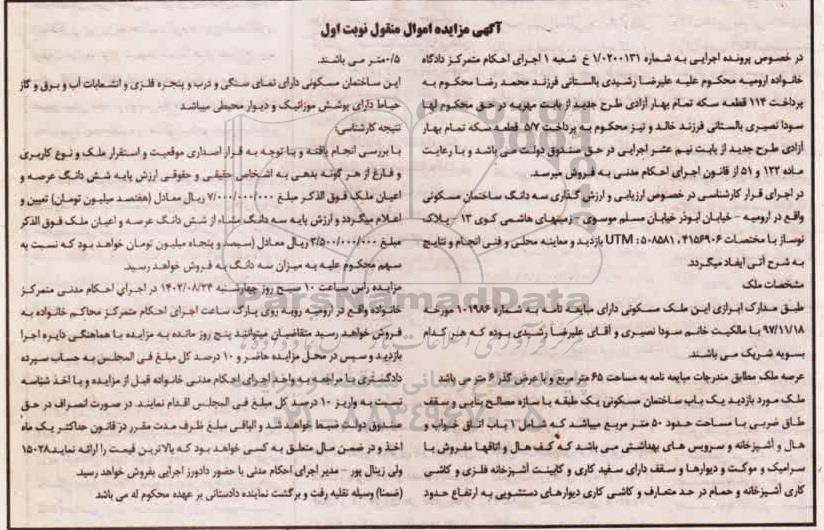 آگهی مزایده اموال منقول نوبت اول
در خصوص پرونده اجرایی به شماره ۱/۰۲۰۰۱۳۱ خ شعبه ۱ اجرای احکام متمرکز دادگاه
خانواده ارومیه محکوم علیه علیرضا رشیدی بالستانی فرزند محمد رضا محکوم به
پرداخت ۱۱۴ قطعه سکه تمام بهار آزادی طرح جدید از بابت مهریه در حق محکوم لها
سودا نصیری بالستانی فرزند خالد و نیز محکوم به پرداخت ۵/۷ قطعه سکه تمام بهار
آزادی طرح جدید از بابت نیم عشر اجرایی در حق صندوق دولت می باشد و با رعایت
ماده ۱۲۲ و ۵۱ از قانون اجرای احکام مدنی به فروش میرسد.
در اجرای قرار کارشناسی در خصوص ارزیابی و ارزش گذاری سه دانگ ساختمان مسکونی
واقع در ارومیه - خیابان ابوذر خیابان مسلم موسوی - زمینهای هاشمی کوی ۱۳ - پلاک
نوساز با مختصات ۴۱۵۶۹۰۶ ، ۵۰۸۵۸۱ : UTM بازدید و معاینه محلی و فنی انجام و نتایج
به شرح آتی ایفاد میگردد.
مشخصات ملک
طبق مدارک ابرازی این ملک مسکونی دارای مبایعه نامه به شماره ۱۰۱۹۸۶ مورخه
۹۷/۱۱/۱۸ با مالکیت خانم سودا نصیری و آقای علیرضا رشیدی بوده که هر کدام
بسویه شریک می باشند.
عرصه ملک مطابق مندرجات مبایعه نامه به مساحت ۶۵ متر مربع و با عرض گذر ۶ متر می باشد
ملک مورد بازدید یک باب ساختمان مسکونی یک طبقه با سازه مصالح بنایی و سقف
طاق ضربی با مساحت حدود ۵۰ متر مربع میباشد که شامل ۱ باب اتاق خواب و
هال و آشپزخانه و سرویس های بهداشتی می باشد که کف هال و اتاقها مفروش با
سرامیک و موکت و دیوارها و سقف دارای سفید کاری و کابینت آشپزخانه فلزی و کاشی
کاری آشپزخانه و حمام در حد متعارف و کاشی کاری دیوارهای دستشویی به ارتفاع حدود
۰/۵متر می باشند.
این ساختمان مسکونی دارای نمای سنگی و درب و پنجره فلزی و انشعابات آب و برق و گاز
حیاط دارای پوشش موزائیک و دیوار محیطی میباشد
نتیجه کارشناسی:
با بررسی انجام یافته و با توجه به قرار اصداری موقعیت و استقرار ملک و نوع کاربری
و فارغ از هر گونه بدهی به اشخاص حقیقی و حقوقی ارزش پایه شش دانگ عرصه و
اعیان ملک فوق الذکر مبلغ ۷/۰۰۰/۰۰۰/۰۰۰ ریال معادل (هفتصد میلیون تومان) تعیین و
اعلام میگردد و ارزش پایه سه دانگ مشاه از شش دانگ عرصه و اعیان ملک فوق الذکر
مبلغ ۳/۵۰۰/۰۰۰/۰۰۰ ریال معادل (سیصد و پنجاه میلیون تومان خواهد بود که نسبت به
سهم محکوم علیه به میزان سه دانگ به فروش خواهد رسید.
مزایده رأس ساعت ۱۰ صبح روز چهارشنبه ۱۴۰۲/۰۸/۲۴ در اجرای احکام مدنی متمرکز
خانواده واقع در ارومیه روبه روی پارک ساعت اجرای احکام متمرکز محاکم خانواده به
فروش خواهد رسید متقاضیان میتوانند پنج روز مانده به مزایده با هماهنگی دایره اجرا
بازدید و سپس در محل مزایده حاضر و ۱۰ درصد کل مبلغ فی المجلس به حساب سپرده
دادگستری با مراجعه به واحد اجرای احکام مدنی خانواده قبل از مزایده و با اخذ شناسه
نسبت به واریز ۱۰ درصد کل مبلغ فی المجلس اقدام نمایند. در صورت انصراف در حق
صندوق دولت ضبط خواهد شد و الباقی مبلغ ظرف مدت مقرر در قانون حداکثر یک ماه
اخذ و در ضمن مال متعلق به کسی خواهد بود که بالاترین قیمت را ارائه نماید۱۵۰۲۸
ولی زینال پور - مدیر اجرای احکام مدنی با حضور دادورز اجرایی بفروش خواهد رسید.
(ضمنا) وسیله نقلیه رفت و برگشت نماینده دادستانی بر عهده محکوم له می باشد
ParsNamadData